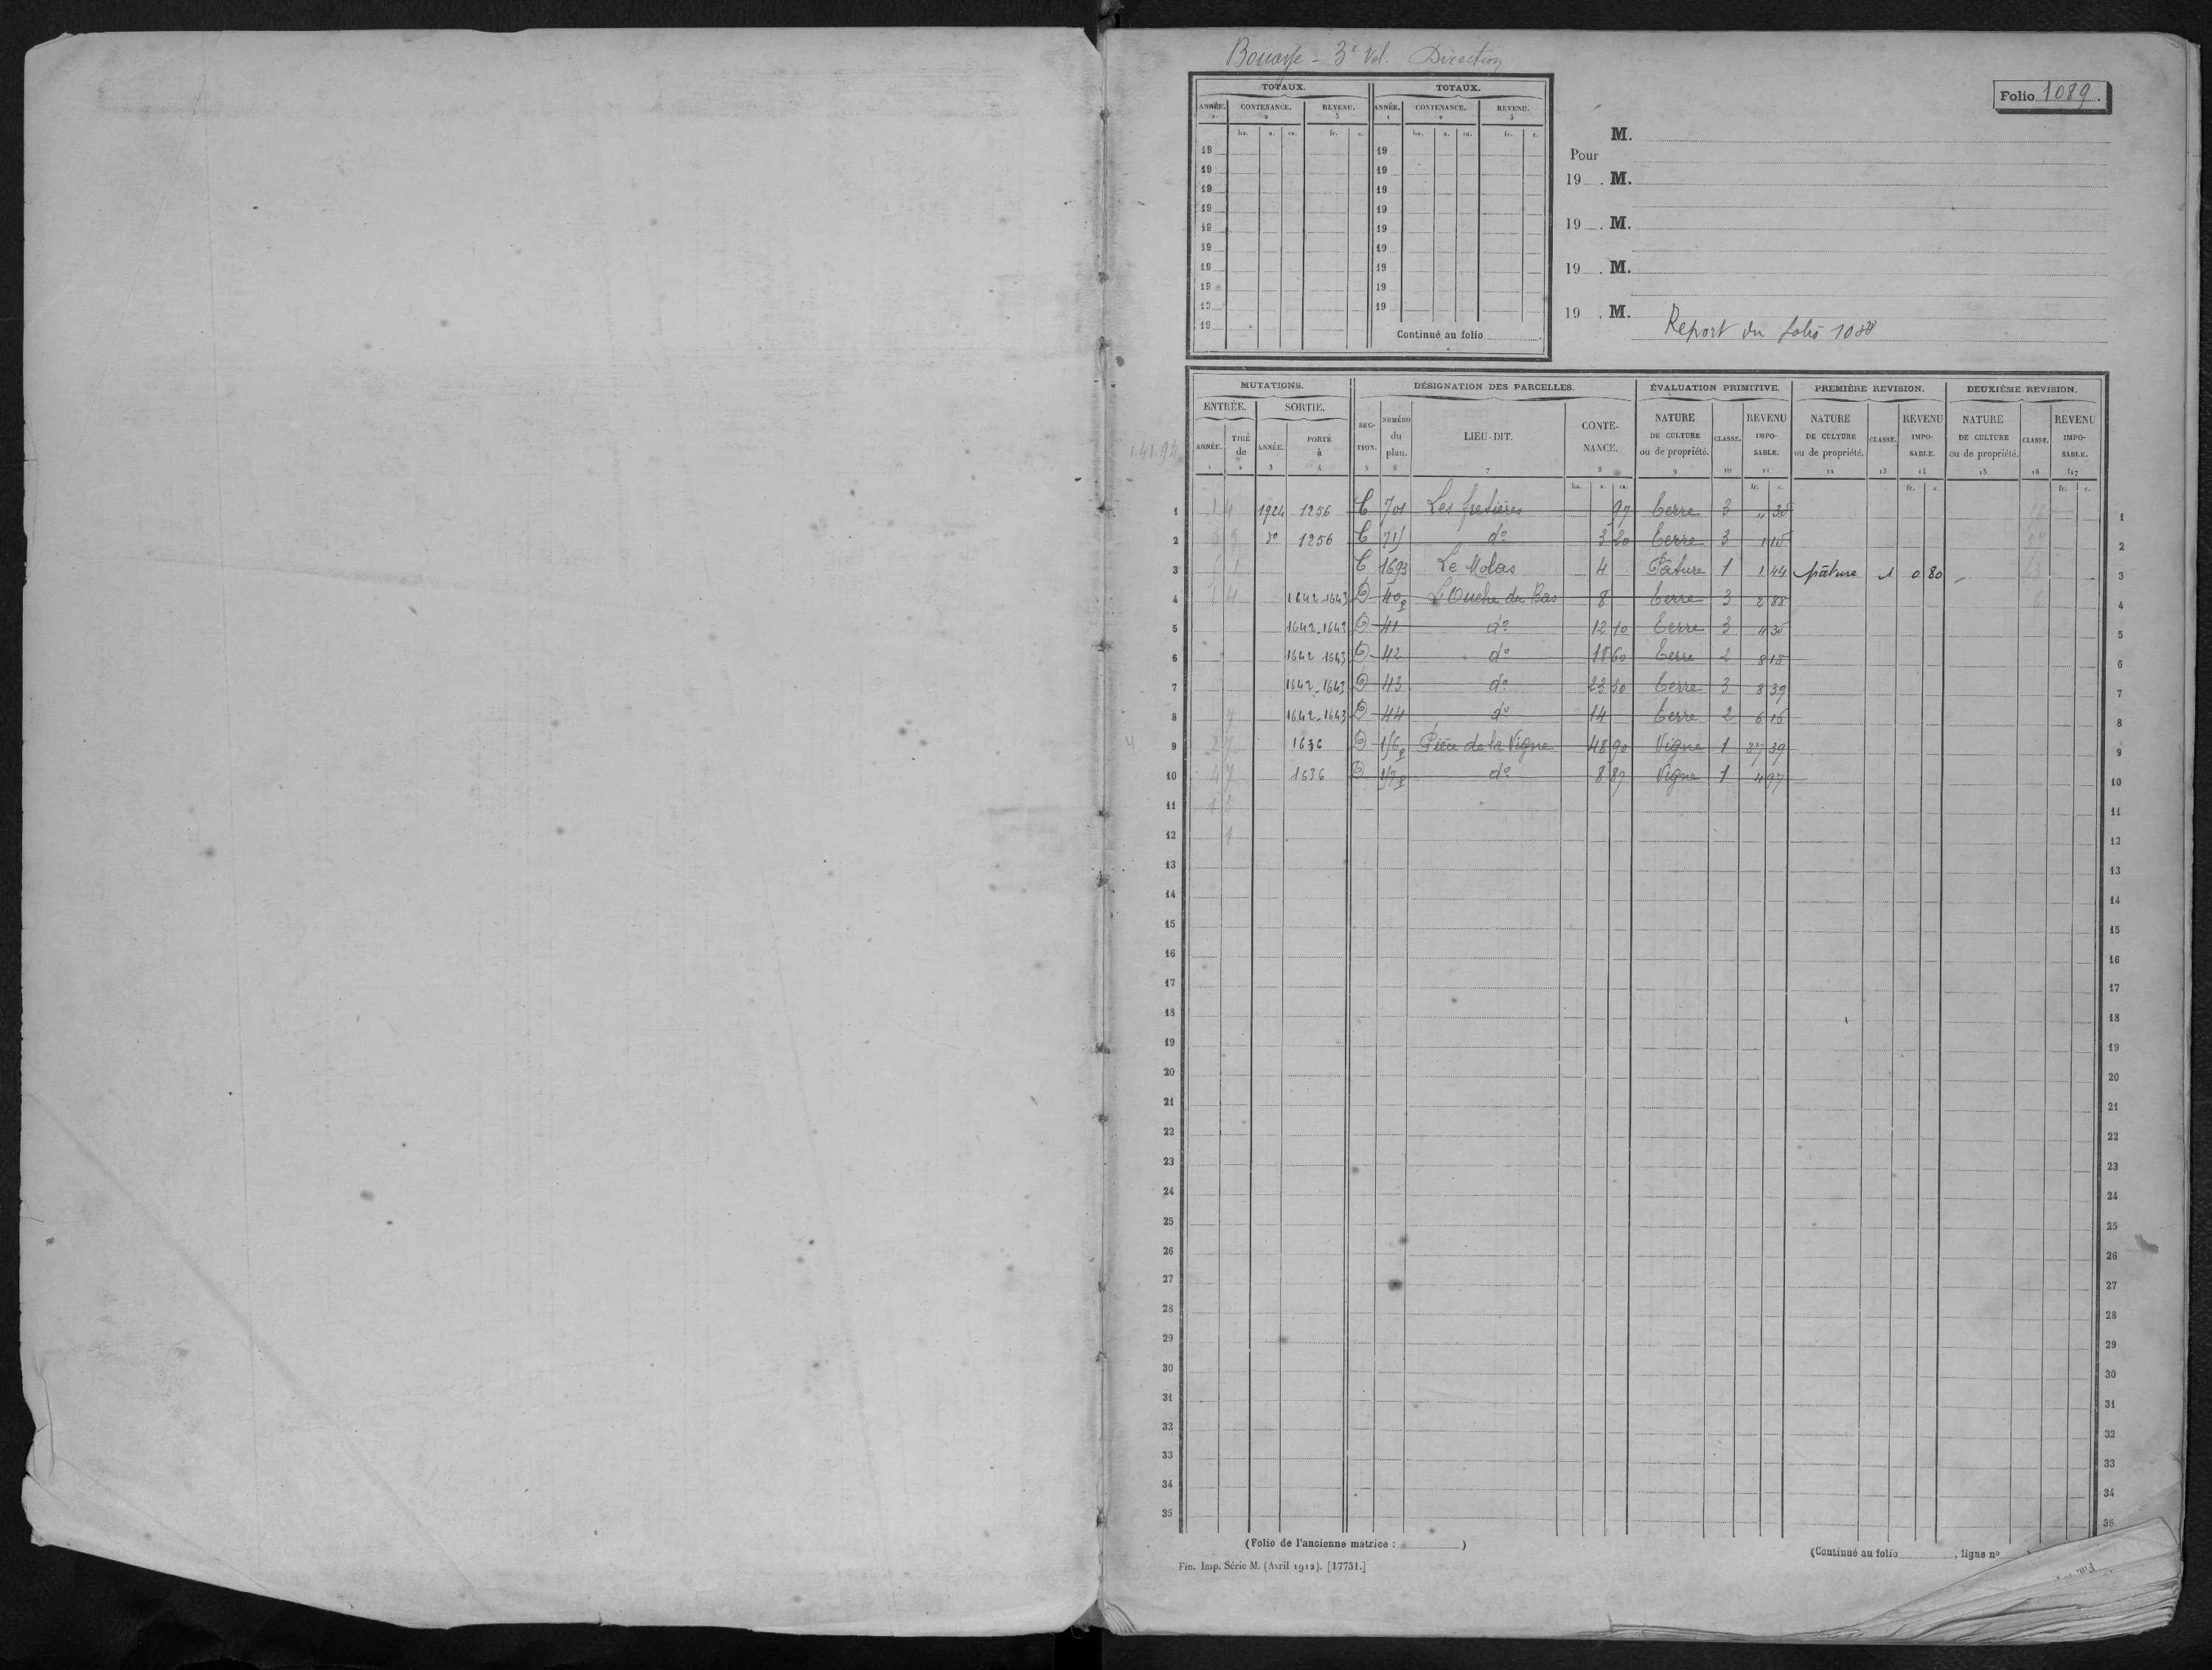 Bouaye - 3e Vol. Direction
Folio 1089.
TOTAUX. TOTAUX.
ANNÉE. CONTENANCE. REVENU. ANNÉE. CONTENANCE. REVENU.
1 2 3 1 2 3
ha. a. ca. fr. c. ha. a. ca. fr. c.
19 19
19 19
19 19
19 19
19 19
19 19
19 19
19 19
19 19
19 Continué au folio
M.
Pour
19 . M.
19 . M.
19 . M.
19 . M.
Report du folio 1088
MUTATIONS. DÉSIGNATION DES PARCELLES. ÉVALUATION PRIMITIVE. PREMIÈRE REVISION. DEUXIÈME REVISION.
ENTRÉE. SORTIE.
ANNÉE. TIRÉ de ANNÉE. PORTÉ à SECTION. NUMÉRO du plan. LIEU-DIT. CONTENANCE. NATURE DE CULTURE ou de propriété. CLASSE. REVENU IMPOSABLE. NATURE DE CULTURE ou de propriété. CLASSE. REVENU IMPOSABLE. NATURE DE CULTURE ou de propriété. CLASSE. REVENU IMPOSABLE.
1 2 3 4 5 6 7 8 9 10 11 12 13 14 15 16 17
ha. a. ca. fr. c. fr. c. fr. c.
1 1924 1256 C 701 Les fretières 97 Terre 3 " 35 1
2 do 1256 C 715 do 3 20 Terre 3 1 15 2
3 C 1693 Le Molas 4 Pâture 1 1 44 pâture 1 0 80 3
4 1642-1643 D 40p L'Ouche du Bas 8 Terre 3 2 88 4
5 1642-1643 D 41 do 12 10 Terre 3 4 35 5
6 1642 1643 D 42 do 18 60 Terre 2 8 18 6
7 1642-1643 D 43 do 23 30 Terre 3 8 39 7
8 1642-1643 D 44 do 14 Terre 2 6 16 8
9 1636 D 156p Pièce de la Vigne 48 90 Vigne 1 27 39 9
10 1636 D 157p do 8 87 Vigne 1 4 97 10
11 11
12 12
13 13
14 14
15 15
16 16
17 17
18 18
19 19
20 20
21 21
22 22
23 23
24 24
25 25
26 26
27 27
28 28
29 29
30 30
31 31
32 32
33 33
34 34
35 35
(Folio de l'ancienne matrice : )
(Continué au folio , ligne no
Fin. Imp. Série M. (Avril 1912). [17731.]